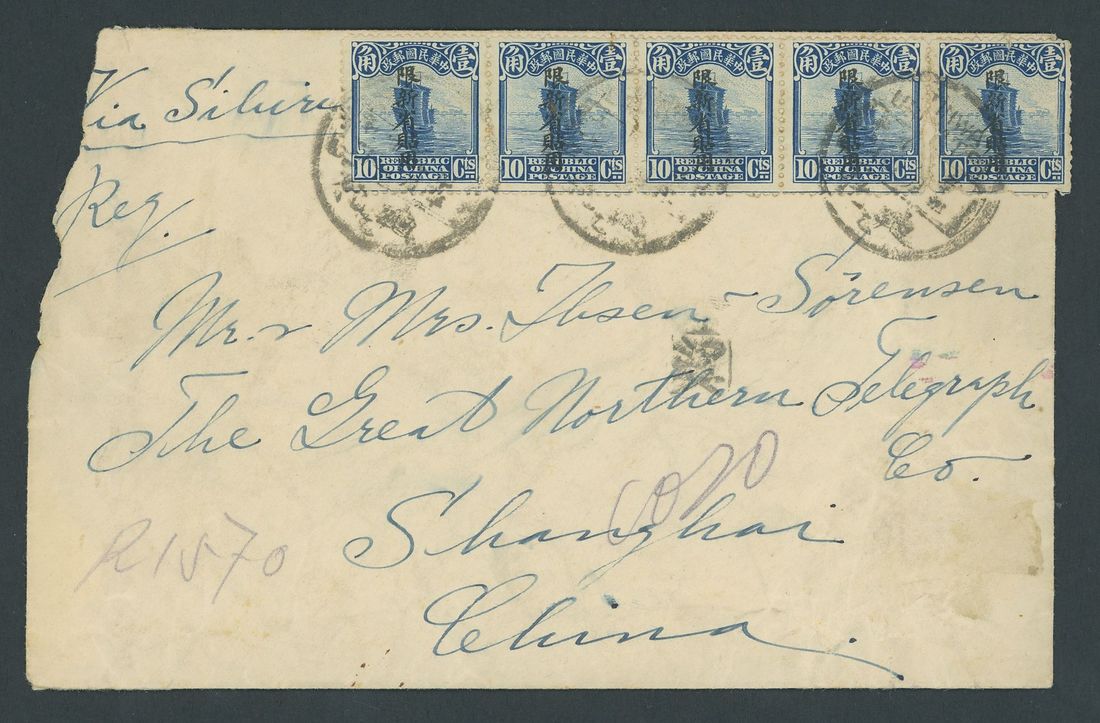 Via Siberia
Reg.
政郵國民華中
角 壹
限新省貼用
10 REPUBLIC OF CHINA POSTAGE Cts
政郵國民華中
角 壹
限新省貼用
10 REPUBLIC OF CHINA POSTAGE Cts
政郵國民華中
角 壹
限新省貼用
10 REPUBLIC OF CHINA POSTAGE Cts
政郵國民華中
角 壹
限新省貼用
10 REPUBLIC OF CHINA POSTAGE Cts
政郵國民華中
角 壹
限新省貼用
10 REPUBLIC OF CHINA POSTAGE Cts
Mr. & Mrs. Ibsen-Sörensen
The Great Northern Telegraph
Co.
Shanghai
China.
R1570